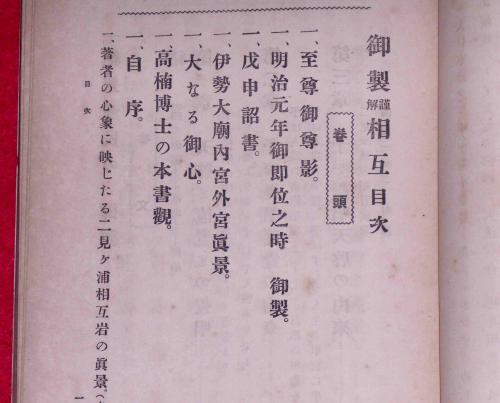 御製謹解相互目次
巻頭
一、至尊御尊影。
一、明治元年御即位之時 御製。
一、戊申詔書。
一、伊勢大廟內宮外宮眞景。
一、大なる御心。
一、高楠博士の本書觀。
一、自序。
一、著者の心象に映じたる二見ヶ浦相互岩の眞景。(
目次
一